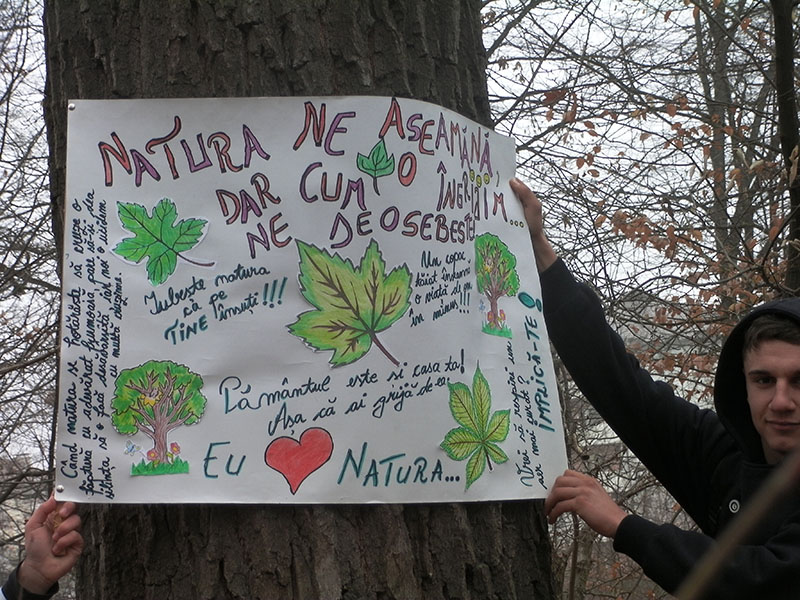 NATURA NE ASEAMĂNĂ,
DAR CUM O ÎNGRIJIM...
NE DEOSEBEȘTE
Când natura se hotărăște să creeze o
făptură cu adevărat frumoasă, pare să-și dea
silința să o facă desăvârșită iar noi o ucidem
cu multă dezinvoltură.
Iubește natura
ca pe
TINE însuți!!!
Un copac
tăiat înseamnă
o viață de om
în minus!!!
Pământul este si casa ta!
Așa că ai grijă de ea!
Vrei să respiri un
aer mai curat?
IMPLICĂ-TE!
EU NATURA...